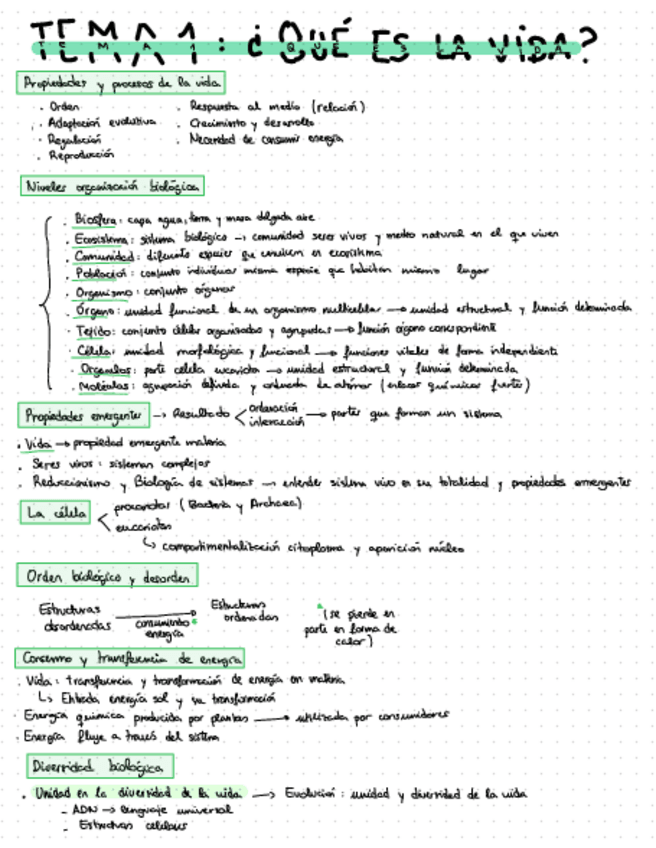 TEMA 1: ¿QUÉ ES LA VIDA?
Propiedades y procesos de la vida
· Orden · Respuesta al medio (relación)
· Adaptación evolutiva · Crecimiento y desarrollo
· Regulación · Necesidad de consumir energía
· Reproducción
Niveles organización biológica
· Biosfera: capa agua, tierra y masa delgada aire
· Ecosistema: sistema biológico → comunidad seres vivos y medio natural en el que viven
· Comunidad: diferentes especies que conviven en ecosistema
· Población: conjunto individuos misma especie que habitan mismo lugar
· Organismo: conjunto órganos
· Órgano: unidad funcional de un organismo multicelular → unidad estructural y función determinada
· Tejido: conjunto células organizadas y agrupadas → función órgano correspondiente
· Célula: unidad morfológica y funcional → funciones vitales de forma independiente
· Organulos: parte célula eucariota → unidad estructural y función determinada
· Moléculas: agrupación definida y ordenada de átomos (enlaces químicos fuerte)
Propiedades emergentes → Resultado < ordenación interacción → partes que forman un sistema
· Vida → propiedad emergente materia
· Seres vivos: sistemas complejos
· Reduccionismo y Biología de sistemas → entender sistema vivo en su totalidad y propiedades emergentes
La célula < procariotas (Bacteria y Archaea)
eucariotas
↳ compartimentalización citoplasma y aparición núcleo
Orden biológico y desorden
Estructuras desordenadas → consumiento energía Estructuras ordenadas (se pierde en parte en forma de calor)
Consumo y transferencia de energía
· Vida: transferencia y transformación de energía en materia
↳ Entrada energía sol y su transformación
· Energía química producida por plantas → utilizada por consumidores
· Energía fluye a través del sistema
Diversidad biológica
· Unidad en la diversidad de la vida → Evolución: unidad y diversidad de la vida
- ADN → lenguaje universal
- Estructuras celulares